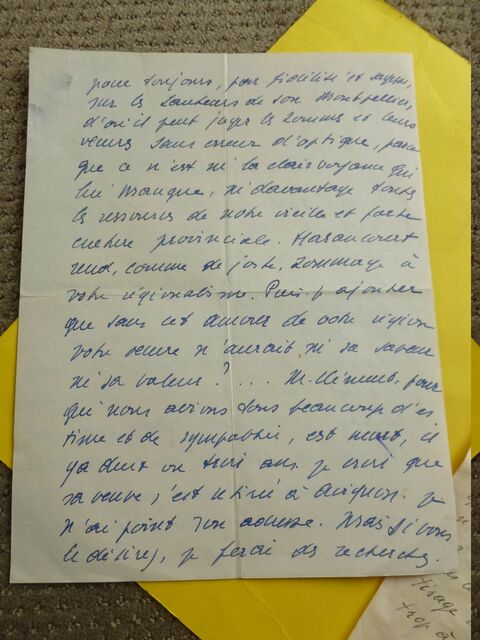 pour toujours, pour fidélité et sagesse,
sur les hauteurs de son Montpellier,
d'où il peut juger les hommes et leurs
œuvres sans erreur d'optique, parce
que ce n'est ni la clairvoyance qui
lui manque, ni davantage toutes
les ressources de notre vieille et forte
culture provinciale. Haraucourt
rend, comme de juste, hommage à
votre régionalisme. Puis-je ajouter
que sans cet amour de votre région
votre œuvre n'aurait ni sa saveur
ni sa valeur ? .... M. Clément, pour
qui nous avions tous beaucoup d'es
time et de sympathie, est mort, il
y a deux ou trois ans. Je crois que
sa veuve s'est retirée à Avignon. Je
n'ai point son adresse. Mais si vous
le désirez, je ferai des recherches.
tirage
trop à